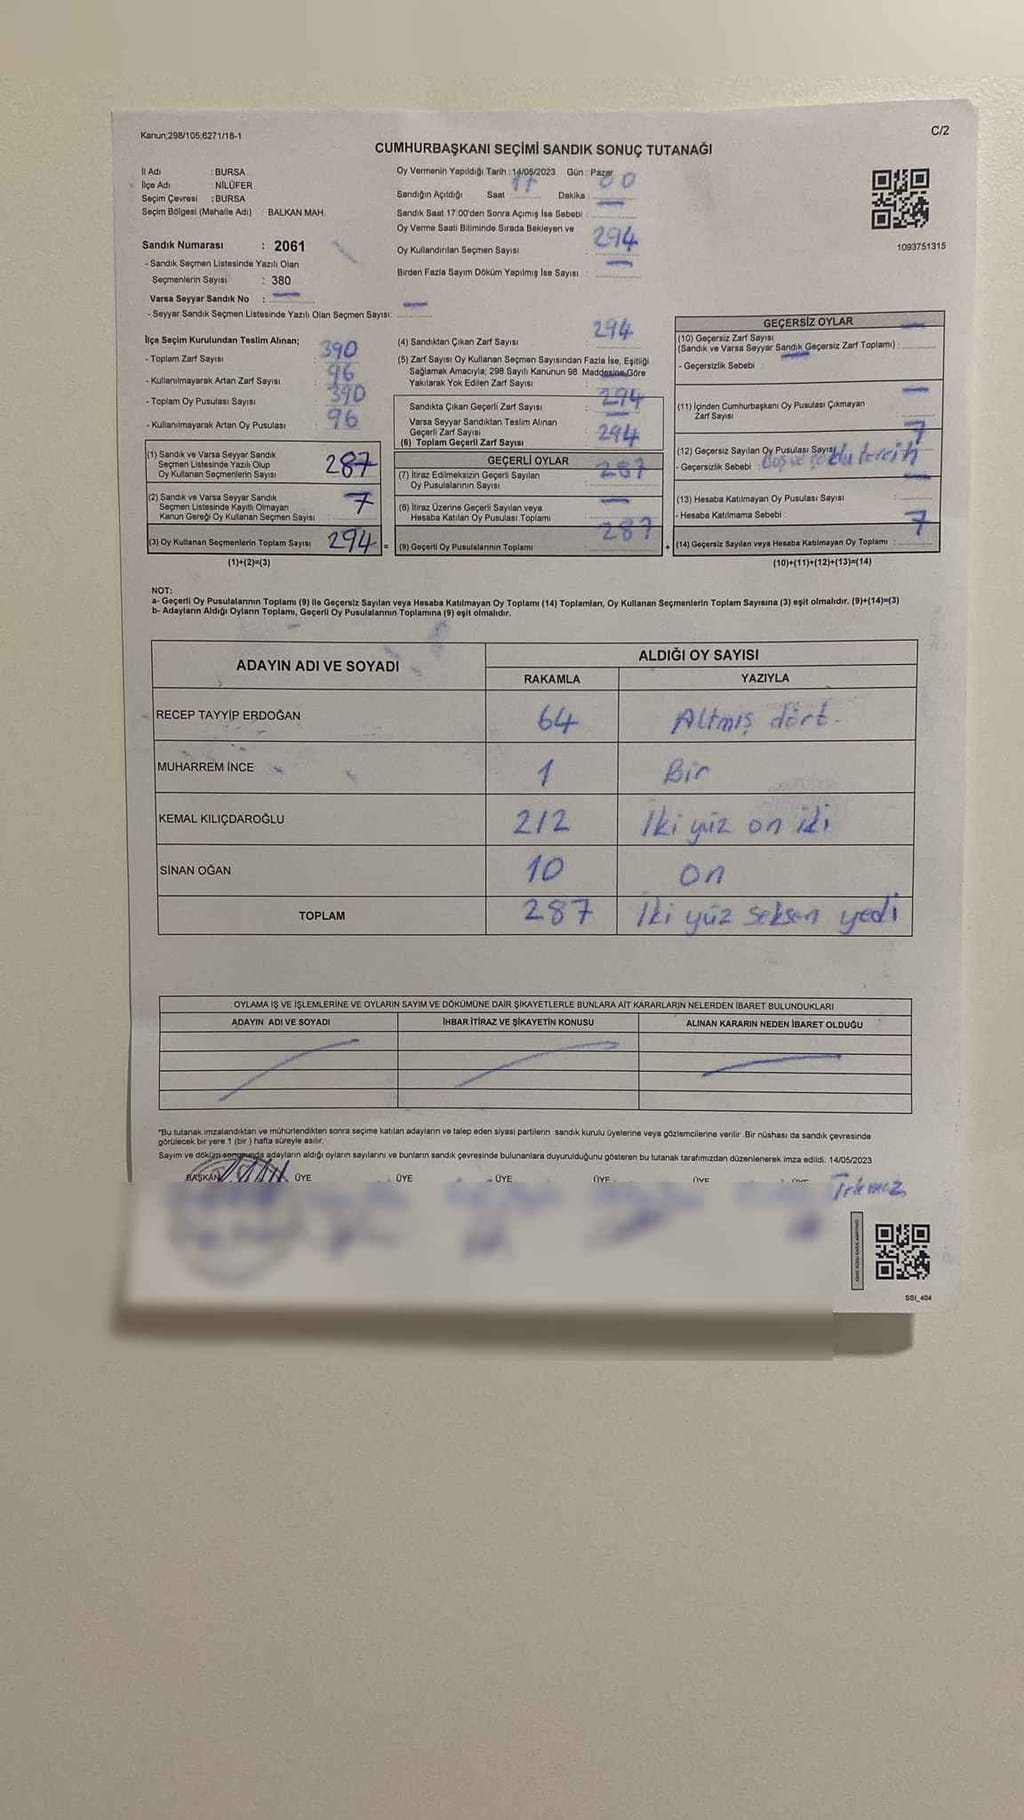 Kanun;298/105;6271/18-1
C/2
CUMHURBAŞKANI SEÇİMİ SANDIK SONUÇ TUTANAĞI
İl Adı : BURSA
İlçe Adı : NİLÜFER
Seçim Çevresi : BURSA
Seçim Bölgesi (Mahalle Adı) : BALKAN MAH.
Oy Vermenin Yapıldığı Tarih : 14/05/2023 Gün : Pazar
Sandığın Açıldığı Saat 17 Dakika : 00
Sandık Saat 17:00'den Sonra Açımış İse Sebebi :
Oy Verme Saati Bitiminde Sırada Bekleyen ve
Oy Kullandırılan Seçmen Sayısı : 294
Birden Fazla Sayım Döküm Yapılmış İse Sayısı : —
1093751315
Sandık Numarası : 2061
- Sandık Seçmen Listesinde Yazılı Olan
Seçmenlerin Sayısı : 380
Varsa Seyyar Sandık No : —
- Seyyar Sandık Seçmen Listesinde Yazılı Olan Seçmen Sayısı: —
İlçe Seçim Kurulundan Teslim Alınan;
- Toplam Zarf Sayısı : 390
- Kullanılmayarak Artan Zarf Sayısı : 96
- Toplam Oy Pusulası Sayısı : 390
- Kullanılmayarak Artan Oy Pusulası : 96
(1) Sandık ve Varsa Seyyar Sandık
Seçmen Listesinde Yazılı Olup
Oy Kullanan Seçmenlerin Sayısı 287
(2) Sandık ve Varsa Seyyar Sandık
Seçmen Listesinde Kayıtlı Olmayan
Kanun Gereği Oy Kullanan Seçmen Sayısı 7
(3) Oy Kullanan Seçmenlerin Toplam Sayısı 294 =
(1)+(2)=(3)
(4) Sandıktan Çıkan Zarf Sayısı : 294
(5) Zarf Sayısı Oy Kullanan Seçmen Sayısından Fazla İse, Eşitliği
Sağlamak Amacıyla; 298 Sayılı Kanunun 98. Maddesine Göre
Yakılarak Yok Edilen Zarf Sayısı : —
Sandıkta Çıkan Geçerli Zarf Sayısı : 294
Varsa Seyyar Sandıktan Teslim Alınan
Geçerli Zarf Sayısı : —
(6) Toplam Geçerli Zarf Sayısı : 294
GEÇERLİ OYLAR
(7) İtiraz Edilmeksizin Geçerli Sayılan
Oy Pusulalarının Sayısı : 287
(8) İtiraz Üzerine Geçerli Sayılan veya
Hesaba Katılan Oy Pusulası Toplamı : —
(9) Geçerli Oy Pusulalarının Toplamı : 287 +
GEÇERSİZ OYLAR
(10) Geçersiz Zarf Sayısı
(Sandık ve Varsa Seyyar Sandık Geçersiz Zarf Toplamı) : —
- Geçersizlik Sebebi : —
(11) İçinden Cumhurbaşkanı Oy Pusulası Çıkmayan
Zarf Sayısı : —
(12) Geçersiz Sayılan Oy Pusulası Sayısı : 7
- Geçersizlik Sebebi : Boş ve tercih
(13) Hesaba Katılmayan Oy Pusulası Sayısı : —
- Hesaba Katılmama Sebebi :
(14) Geçersiz Sayılan veya Hesaba Katılmayan Oy Toplamı : 7
(10)+(11)+(12)+(13)=(14)
NOT:
a- Geçerli Oy Pusulalarının Toplamı (9) ile Geçersiz Sayılan veya Hesaba Katılmayan Oy Toplamı (14) Toplamları, Oy Kullanan Seçmenlerin Toplam Sayısına (3) eşit olmalıdır. (9)+(14)=(3)
b- Adayların Aldığı Oyların Toplamı, Geçerli Oy Pusulalarının Toplamına (9) eşit olmalıdır.
ADAYIN ADI VE SOYADI ALDIĞI OY SAYISI
RAKAMLA YAZIYLA
RECEP TAYYİP ERDOĞAN 64 Altmış dört
MUHARREM İNCE 1 Bir
KEMAL KILIÇDAROĞLU 212 İki yüz on iki
SİNAN OĞAN 10 On
TOPLAM 287 İki yüz seksen yedi
OYLAMA İŞ VE İŞLEMLERİNE VE OYLARIN SAYIM VE DÖKÜMÜNE DAİR ŞİKAYETLERLE BUNLARA AİT KARARLARIN NELERDEN İBARET BULUNDUKLARI
ADAYIN ADI VE SOYADI İHBAR İTİRAZ VE ŞİKAYETİN KONUSU ALINAN KARARIN NEDEN İBARET OLDUĞU
*Bu tutanak imzalandıktan ve mühürlendikten sonra seçime katılan adayların ve talep eden siyasi partilerin sandık kurulu üyelerine veya gözlemcilerine verilir. Bir nüshası da sandık çevresinde
görülecek bir yere 1 (bir) hafta süreyle asılır.
Sayım ve döküm sonucunda adayların aldığı oyların sayılarını ve bunların sandık çevresinde bulunanlara duyurulduğunu gösteren bu tutanak tarafımızdan düzenlenerek imza edildi. 14/05/2023
BAŞKAN ÜYE ÜYE ÜYE ÜYE ÜYE ÜYE
SSI_404